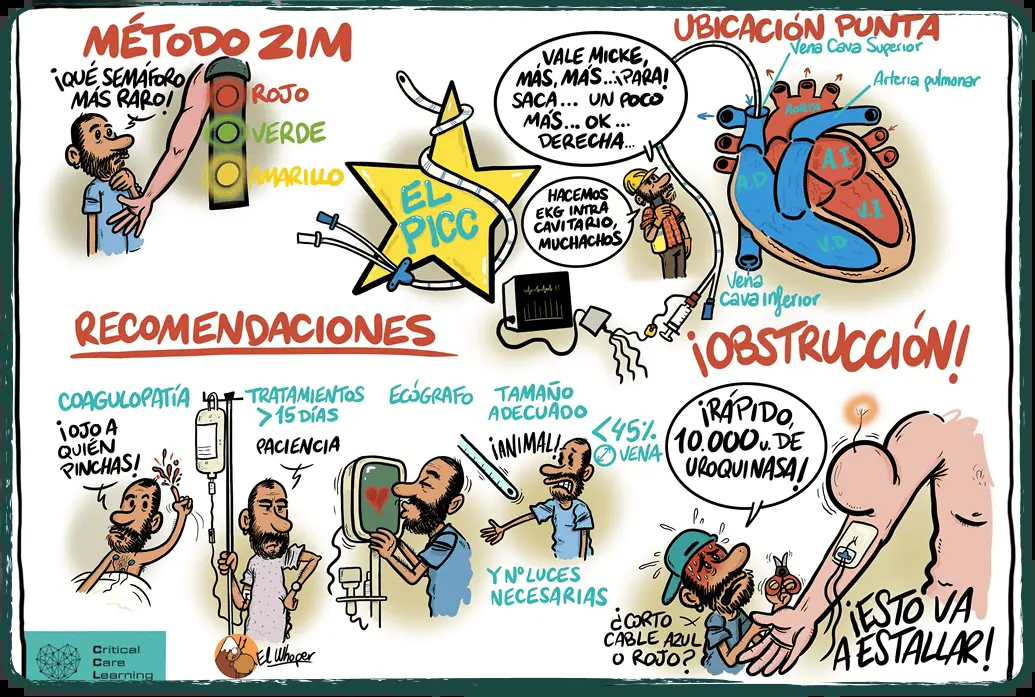 MÉTODO ZIM
¡QUÉ SEMÁFORO
MÁS RARO!
ROJO
VERDE
AMARILLO
EL
PICC
VALE MICKE,
MÁS, MÁS...¡PARA!
SACA... UN POCO
MÁS... OK...
DERECHA...
HACEMOS
EKG INTRA
CAVITARIO,
MUCHACHOS
UBICACIÓN PUNTA
Vena Cava Superior
Arteria pulmonar
Aorta
A.D
A.I
V.I
V.D
Vena
cava inferior
RECOMENDACIONES
COAGULOPATÍA
¡OJO A
QUIÉN
PINCHAS!
TRATAMIENTOS
>15 DÍAS
PACIENCIA
ECÓGRAFO
TAMAÑO
ADECUADO
¡ANIMAL!
<45%
VENA
Y Nº LUCES
NECESARIAS
¡OBSTRUCCIÓN!
¡RÁPIDO,
10.000 u. DE
UROQUINASA!
¿CORTO
CABLE AZUL
O ROJO?
¡ESTO VA
A ESTALLAR!
Critical
Care
Learning
El Whoper